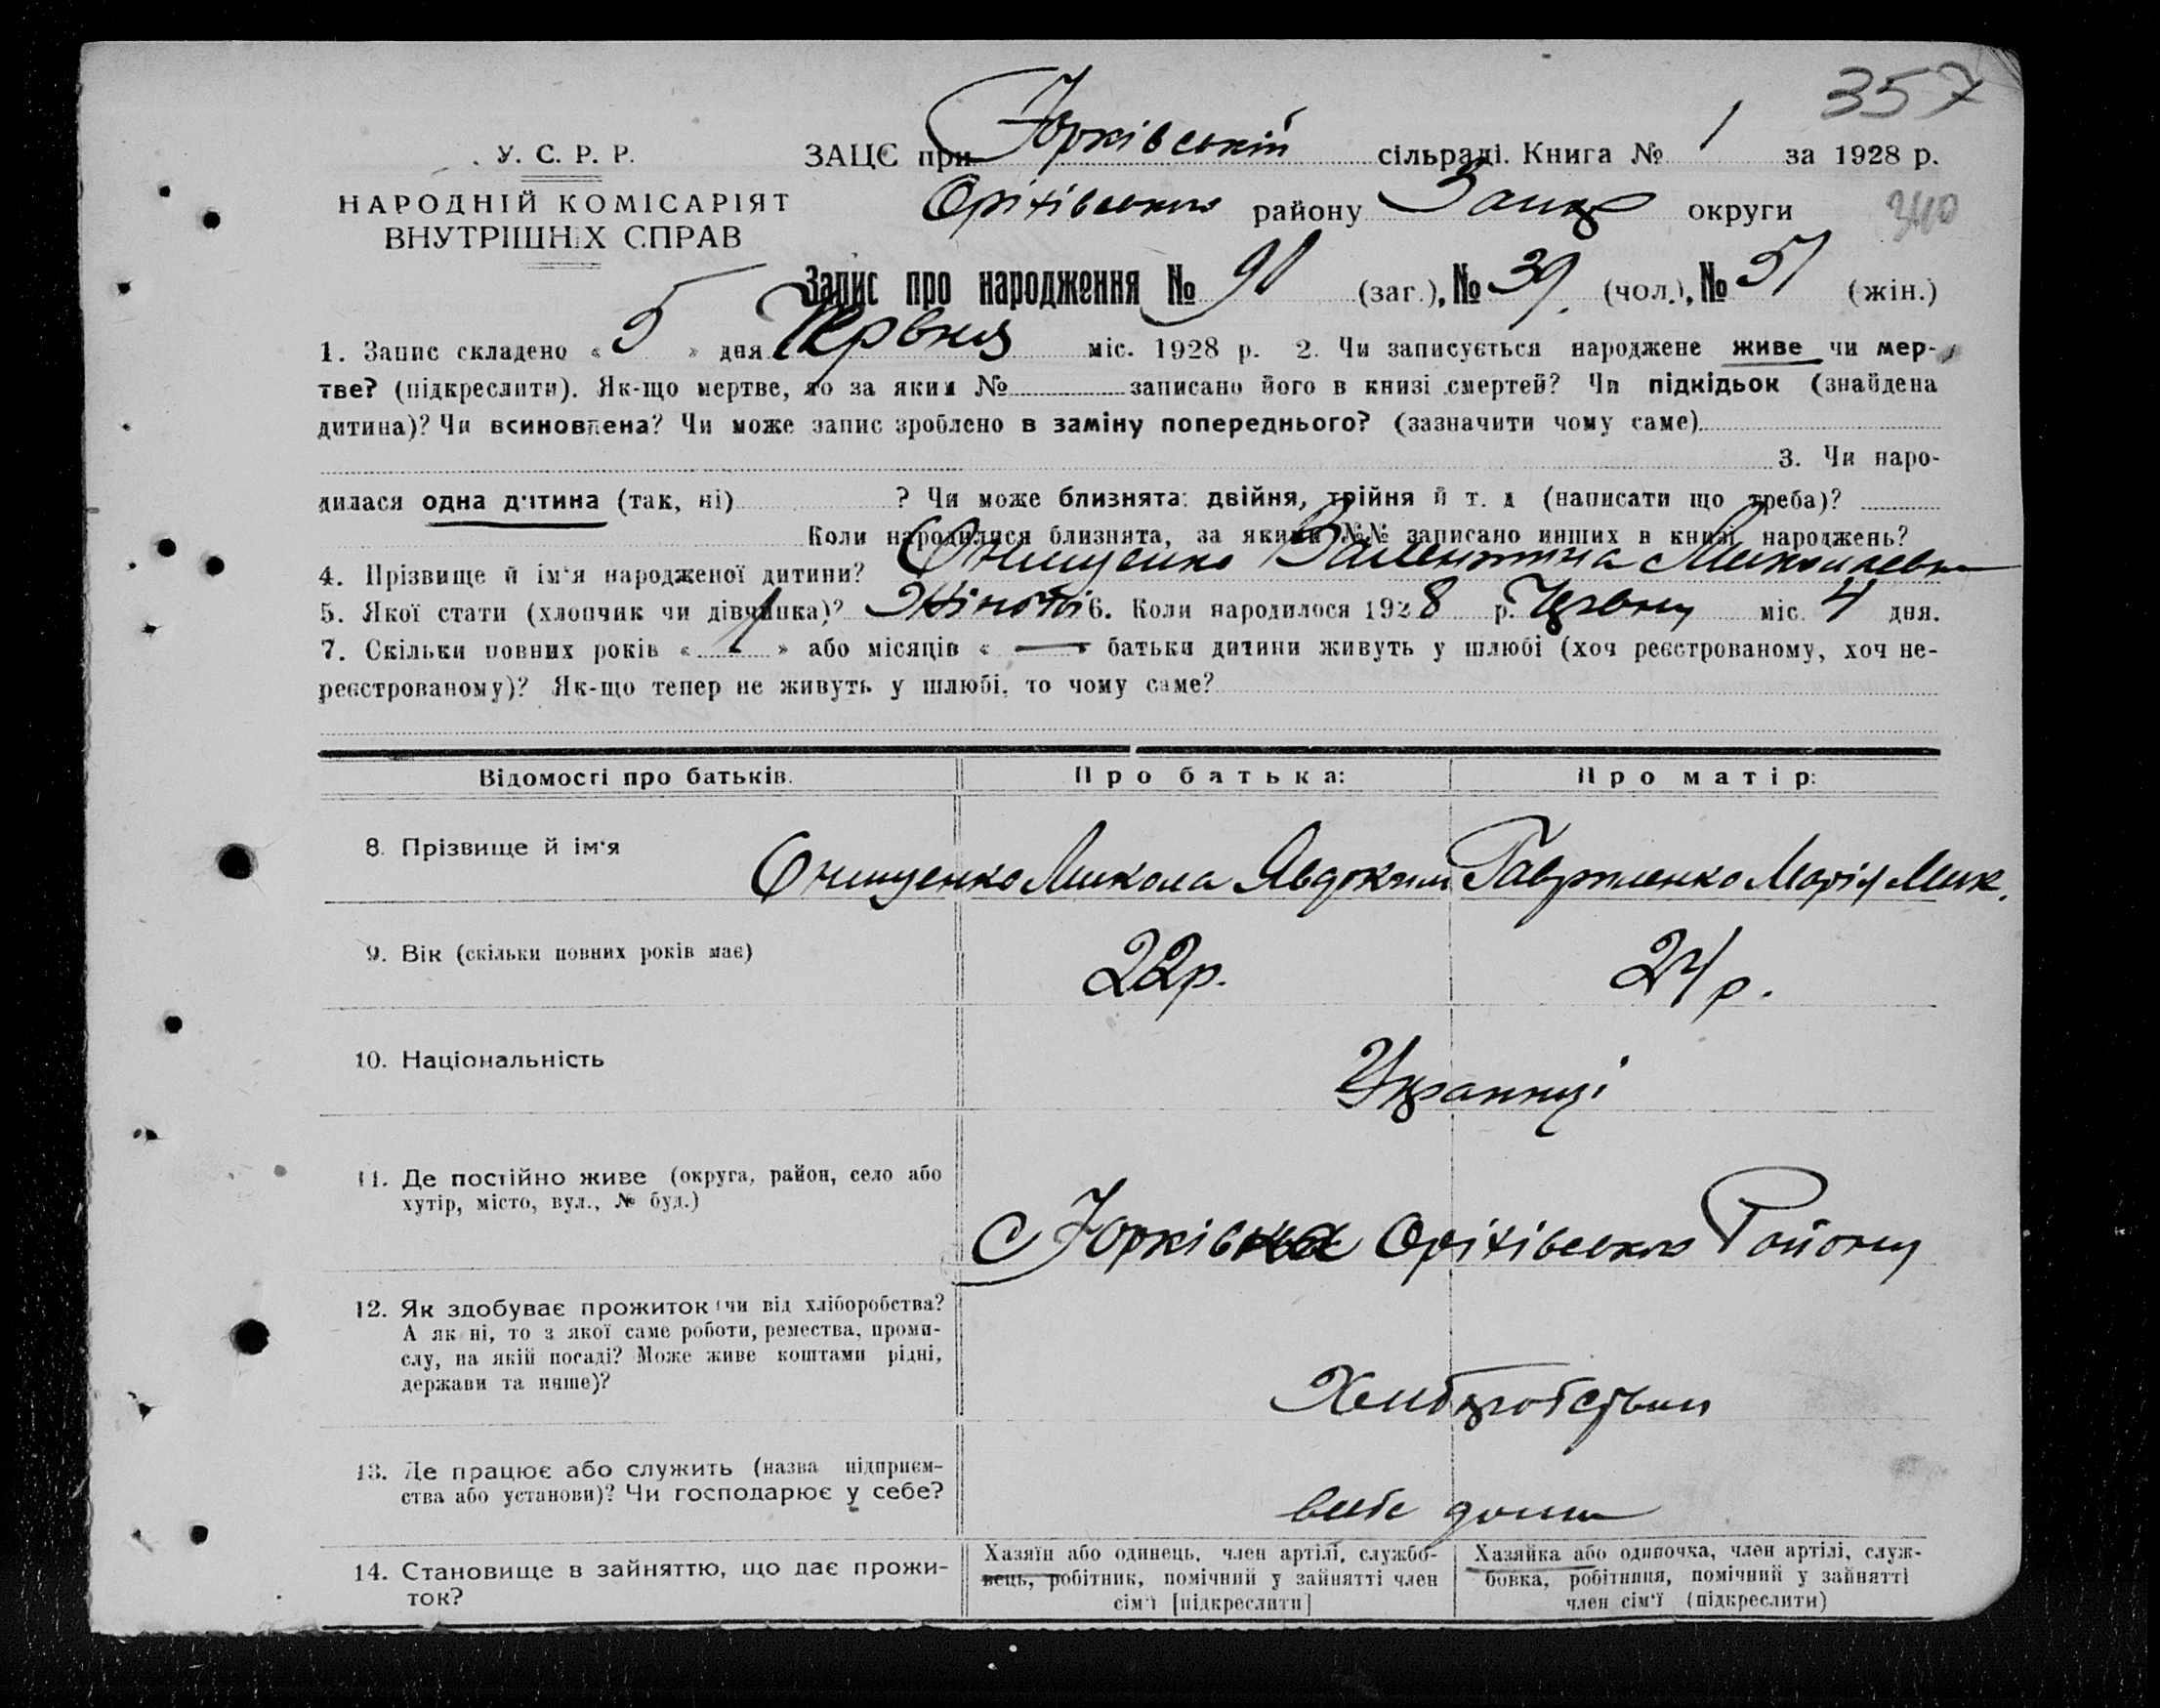 357
У. С. Р. Р.
ЗАЦС при Юрківській сільраді. Книга № 1 за 1928 р.
НАРОДНІЙ КОМІСАРІЯТ
ВНУТРІШНІХ СПРАВ
Оріхівського району Запор округи
340
Запис про народження № 90 (заг.), № 39 (чол.), № 51 (жін.)
1. Запис складено « 5 » дня Червня міс. 1928 р. 2. Чи записується народжене живе чи мер-
тве? (підкреслити). Як-що мертве, то за яким № записано його в книзі смертей? Чи підкідьок (знайдена
дитина)? Чи всиновлена? Чи може запис зроблено в заміну попереднього? (зазначити чому саме)
3. Чи наро-
дилася одна дитина (так, ні) ? Чи може близнята: двійня, трійня й т. д (написати що треба)?
Коли народилися близнята, за якими №№ записано инших в книзі народжень?
4. Прізвище й ім'я народженої дитини? Онищенко Валентина Миколаевна
5. Якої стати (хлопчик чи дівчинка)? Жіночої 6. Коли народилося 1928 р. Червня міс. 4 дня.
7. Скільки повних років « 1 » або місяців « — » батьки дитини живуть у шлюбі (хоч реєстрованому, хоч не-
реєстрованому)? Як-що тепер не живуть у шлюбі, то чому саме?
Відомості про батьків. Про батька: Про матір:
8. Прізвище й ім'я Онищенко Микола Явдоким Гавриленко Марія Мик.
9. Вік (скільки повних років має) 22р. 24р.
10. Національність Украинці
11. Де постійно живе (округа, район, село або
хутір, місто, вул., № буд.)
С Юрківка Оріхівського Району
12. Як здобуває прожиток (чи від хліборобства?
А як ні, то з якої саме роботи, ремества, проми-
слу, на якій посаді? Може живе коштами рідні,
держави та инше)?
Хлиборобством
13. Де працює або служить (назва підприєм-
ства або установи)? Чи господарює у себе?
всебе дома
14. Становище в зайняттю, що дає прожи-
ток?
Хазяїн або одинець, член артілі, службо-
вець, робітник, помічний у зайнятті член
сім'ї [підкреслити]
Хазяйка або одиночка, член артілі, служ-
бовка, робітниця, помічний у зайнятті
член сім'ї (підкреслити)